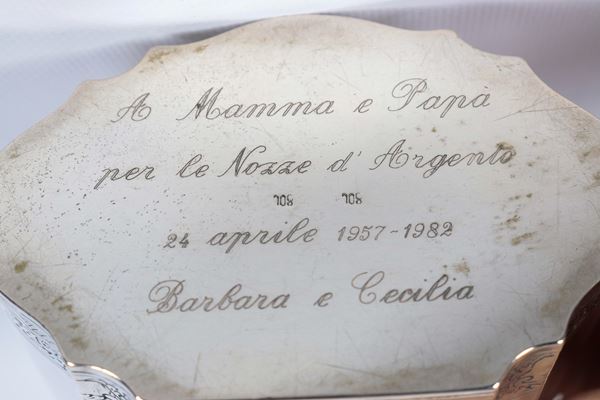 A Mamma e Papà
per le Nozze d'Argento
24 aprile 1957-1982
Barbara e Cecilia